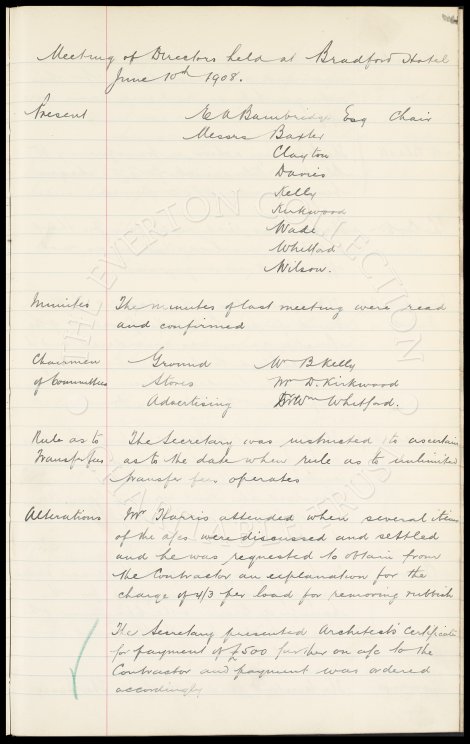 Meeting of Directors held at Bradford Hotel
June 10th 1908.
Present E A Bainbridge Esq Chair
Messrs Baxter
Clayton
Davies
Kelly
Kirkwood
Wade
Whitford
Wilson.
Minutes The minutes of last meeting were read
and confirmed
Chairmen Ground Mr B Kelly
of Committees Stores Mr D. Kirkwood
Advertising Dr Wm Whitford.
Rule as to The Secretary was instructed to ascertain
Transfer fees as to the date when rule as to unlimited
transfer fees operates
Alterations Mr Harris attended when several items
of the a/cs were discussed and settled
and he was requested to obtain from
the Contractor an explanation for the
charge of 4/3 per load for removing rubbish
The Secretary presented Architect's Certificate
for payment of £500 further on a/c to the
Contractor and payment was ordered
accordingly
© THE EVERTON COLLECTION
CHARITABLE TRUST